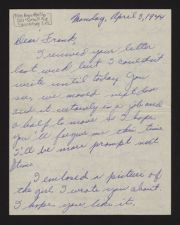 Monday, April 3, 1944
Dear Frank,
I received your letter
last week but I couldn't
write until today. You
see, we moved next door
and it certainly is a job and
a half to move so I hope
you'll forgive me this time
I'll be more prompt next
time.
I enclosed a picture of
the girl I wrote you about.
I hope you like it.